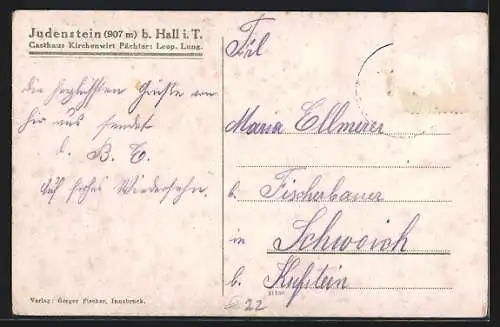 Judenstein (907 m) b. Hall i. T.
Gasthaus Kirchenwirt Pächter: Leop. Lung.
Die herzlichsten Grüße von
hier aus sendet
d. B. T.
Auf frohes Wiedersehn.
Frl
Maria Ellmerer
b. Fischerbauer
in
Schwoich
b. Kufstein
22
Verlag: Gregor Fischer, Innsbruck.